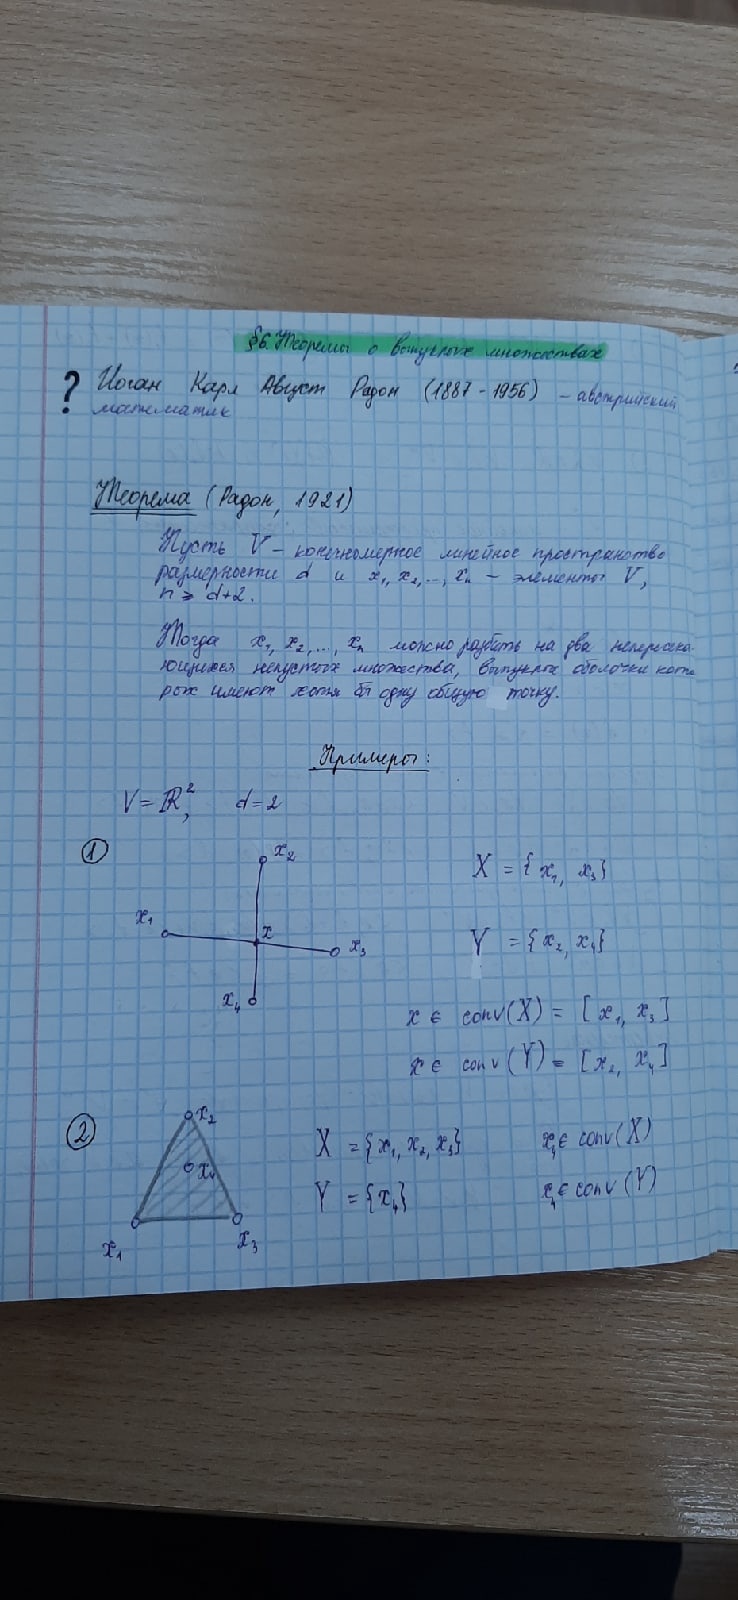 §6. Теоремы о выпуклых множествах
? Иоган Карл Август Радон (1887 - 1956) - австрийский
математик
Теорема (Радон, 1921)
Пусть V - конечномерное линейное пространство
размерности d и x₁, x₂, ..., xₙ - элементы V,
n ≥ d+2.
Тогда x₁, x₂, ..., xₙ можно разбить на два непересека-
ющихся непустых множества, выпуклые оболочки кото-
рых имеют хотя бы одну общую точку.
Примеры:
V = ℝ², d = 2
1
x₂
x₁
x
x₃
x₄
X = {x₁, x₃}
Y = {x₂, x₄}
x ∈ conv(X) = [x₁, x₃]
x ∈ conv(Y) = [x₂, x₄]
2
x₂
x₄
x₁
x₃
X = {x₁, x₂, x₃} x₄ ∈ conv(X)
Y = {x₄} x₄ ∈ conv(Y)